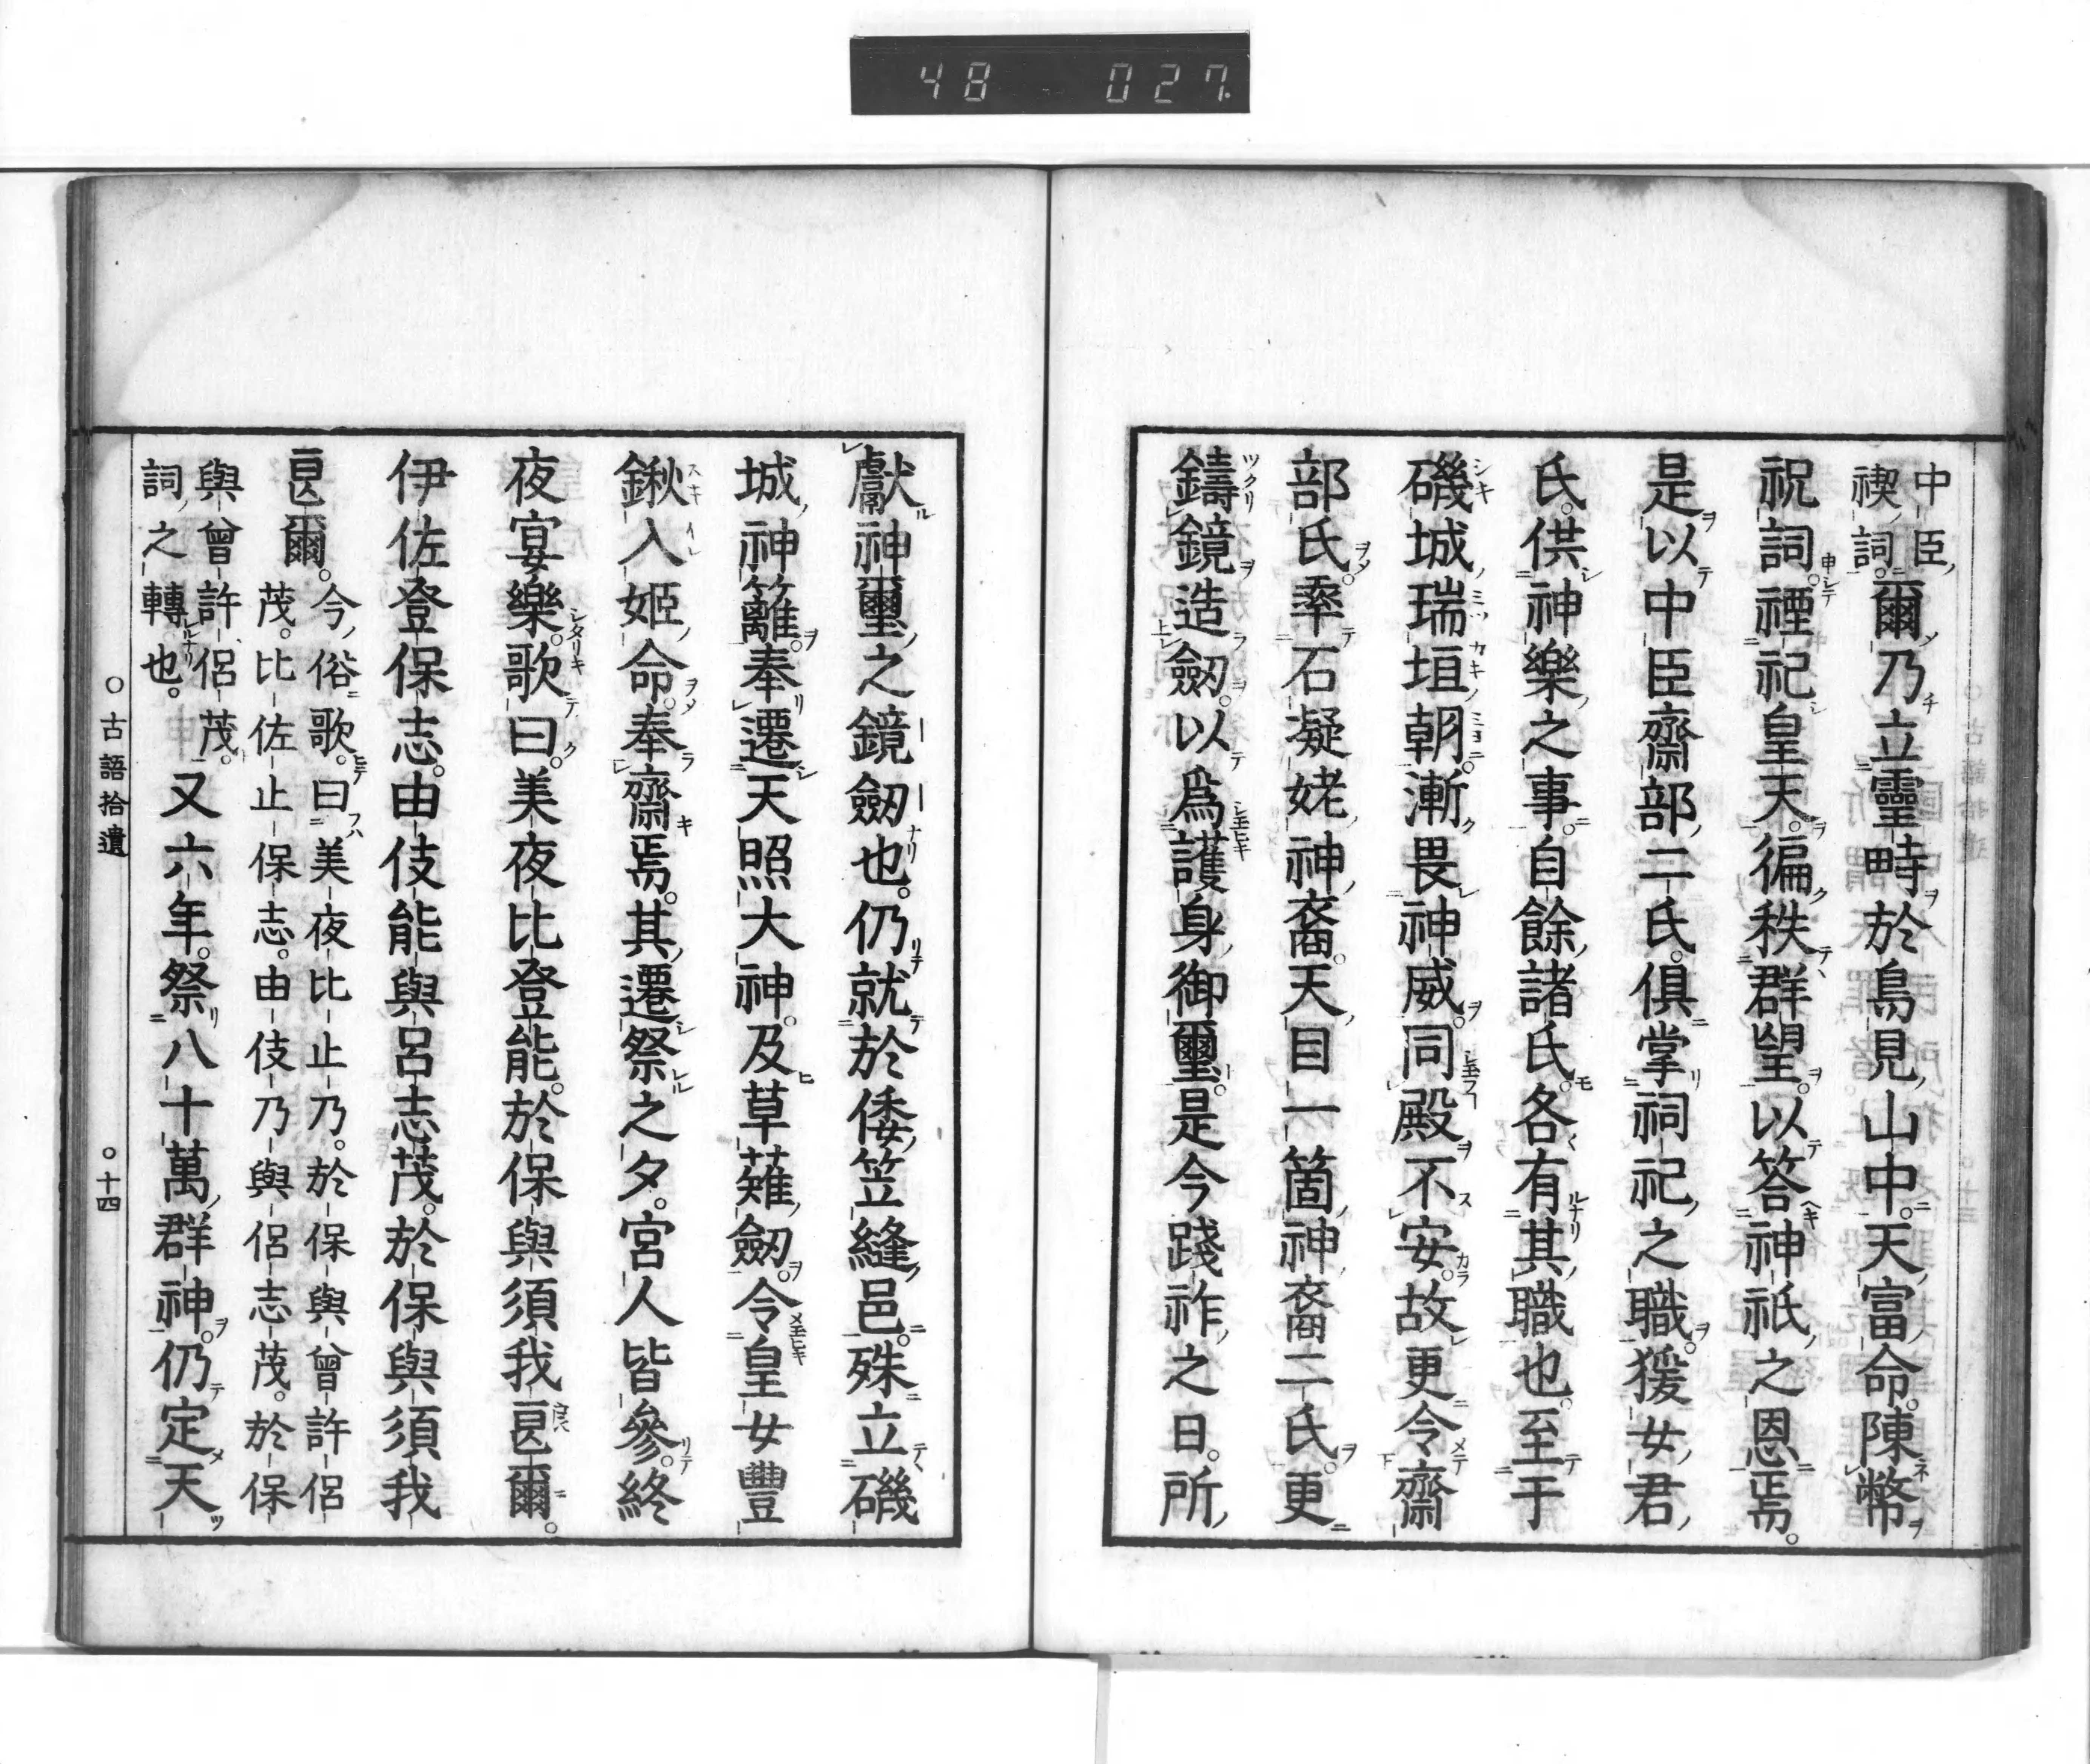 48 027.
中臣
禊詞。爾乃立靈畤於鳥見山中。天富命。陳幣
祝詞。禋祀皇天。徧秩群望。以答神祇之恩焉。
是以中臣齋部二氏。俱掌祠祀之職。猨女君
氏。供神樂之事。自餘諸氏。各有其職也。至于
磯城瑞垣朝。漸畏神威。同殿不安。故更令齋
部氏。率石凝姥神裔。天目一箇神裔二氏。更
鑄鏡造劒。以爲護身御璽。是今踐祚之日。所
獻神璽之鏡劒也。仍就於倭笠縫邑。殊立磯
城神籬。奉遷天照大神。及草薙劒。令皇女豐
鍬入姬命。奉齋焉。其遷祭之夕。宮人皆參。終
夜宴樂。歌曰。美夜比登能。於保與須我良爾。
伊佐登保志。由伎能與呂志茂。於保與須我
良爾。今俗歌。曰美夜比止乃。於保與曾許侶
茂。比佐止保志。由伎乃與侶志茂。於保
與曾許侶茂。
詞之轉也。又六年。祭八十萬群神。仍定天
○古語拾遺 ○十四